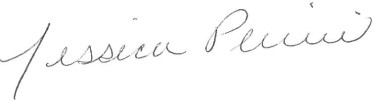 Jessica Perini